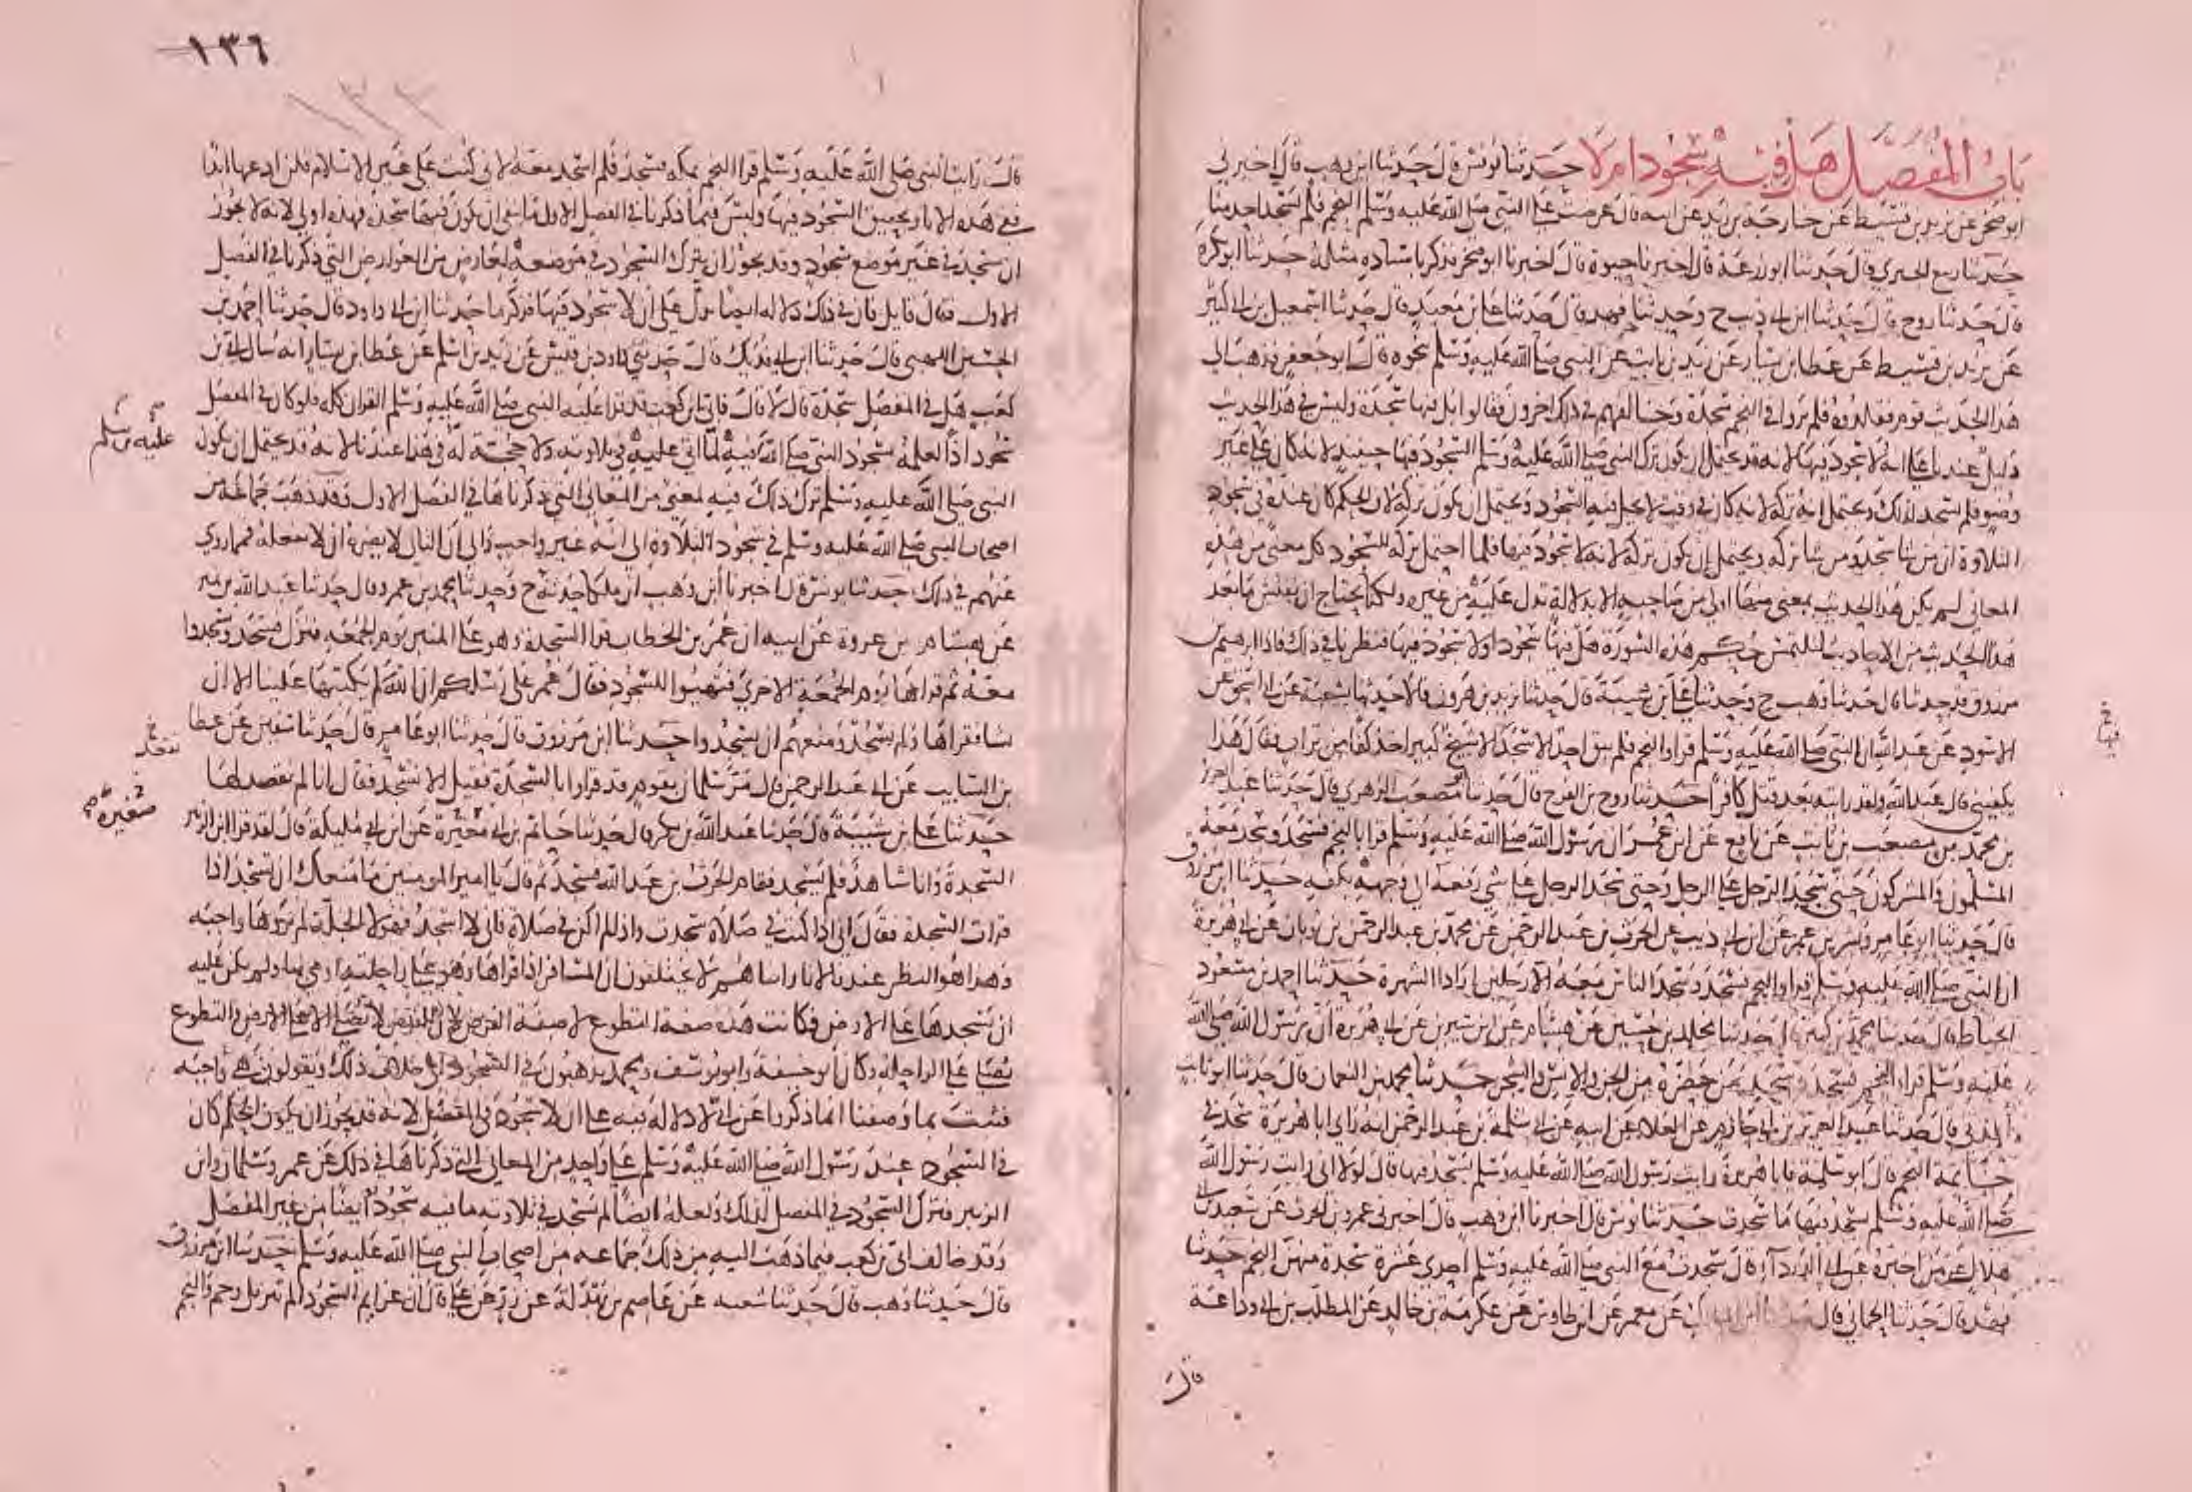 باب المفصل هل فيه سجود ام لا حدثنا يونس قال حدثنا ابن وهب قال اخبرني
ابو صخر عن يزيد بن قسيط عن خارجة بن زيد عن ابيه قال عرضت على النبي صلى الله عليه وسلم النجم فلم يسجد احد منا
حدثنا ربيع الجيزي قال حدثنا ابو زرعة قال اخبرنا حيوة قال اخبرنا ابو صخر فذكر باسناده مثله حدثنا ابو بكرة
قال حدثنا روح قال حدثنا ابن ابي ذيب ح وحدثنا فهد قال حدثنا علي بن معبد قال حدثنا اسمعيل بن ابي كثير
عن يزيد بن قسيط عن عطا بن يسار عن زيد بن ثابت عن النبي صلى الله عليه وسلم نحوه قال ابو جعفر فذهب الى
هذا الحديث قوم فقلدوه فلم يروا في النجم سجدة وخالفهم في ذلك اخرون فقالوا بل فيها سجدة وليس في هذا الحديث
دليل عندنا على انه لا سجود فيها لانه قد يحتمل ان يكون ترك النبي صلى الله عليه وسلم السجود فيها حينيذ لانه كان على غير
وضوء فلم يسجد لذلك ويحتمل انه تركه لانه كان في وقت لا يحل فيه السجود ويحتمل ان يكون تركه لان الحكم كان عنده في سجود
التلاوة ان من شا سجد ومن شا تركه ويحتمل ان يكون تركه لانه لا سجود فيها فلما احتمل تركه للسجود كل معنى من هذه
المعاني لم يكن هذا الحديث بمعنى منها اولى من صاحبه الا بدلالة تدل عليه من غيره ولكنا نحتاج ان نفتش ما بعد
هذا الحديث من الاحاديث لنلتمس حكم هذه السورة هل فيها سجود او لا سجود فيها فنظرنا في ذلك فاذا ابرهيم بن
مرزوق قد حدثنا قال حدثنا وهب ح وحدثنا علي بن شيبة قال حدثنا يزيد بن هرون قالا حدثنا شعبة عن ابي اسحق عن
الاسود عن عبد الله ان النبي صلى الله عليه وسلم قرا والنجم فلم يبق احد الا سجد الا شيخ كبير اخذ كفا من تراب فقال هذا
يكفيني قال عبد الله ولقد رايته بعد قتل كافرا حدثنا روح بن الفرج قال حدثنا مصعب الزهري قال حدثنا عبد العزيز
بن محمد عن مصعب بن ثابت عن نافع عن ابن عمر ان رسول الله صلى الله عليه وسلم قرا بالنجم فسجد وسجد معه
المسلمون والمشركون حتى سجد الرجل على الرجل وحتى سجد الرجل على شي رفعه الى وجهه بكفه حدثنا ابن مرزوق
قال حدثنا ابو عامر وبشر بن عمر عن ابن ابي ذيب عن الحرث بن عبد الرحمن عن محمد بن عبد الرحمن بن ثوبان عن ابي هريرة
ان النبي صلى الله عليه وسلم قرا والنجم فسجد وسجد الناس معه الا رجلين ارادا الشهرة حدثنا احمد بن مسعود
الخياط قال حدثنا محمد بن كثير قال حدثنا مخلد بن حسين عن هشام عن ابن سيرين عن ابي هريرة ان رسول الله صلى الله
عليه وسلم قرا النجم فسجد وسجد من حضره من الجن والانس والشجر حدثنا محمد بن النعمان قال حدثنا ابو ثابت
المدني قال حدثنا عبد العزيز بن ابي حازم عن العلاء عن ابيه عن ابي سلمة بن عبد الرحمن انه راى ابا هريرة سجد في
خاتمة النجم قال ابو سلمة يا با هريرة رايت رسول الله صلى الله عليه وسلم يسجد فيها قال لولا اني رايت رسول الله
صلى الله عليه وسلم سجد فيها ما سجدت حدثنا يونس قال اخبرنا ابن وهب قال اخبرني عمرو بن الحرث عن سعيد بن ابي
هلال عن من اخبره عن ابي الدرداء قال سجدت مع النبي صلى الله عليه وسلم احدى عشرة سجدة منهن النجم حدثنا
فهد قال حدثنا الحماني قال حدثنا ابن المبارك عن معمر عن ابن طاوس عن عكرمة بن خالد عن المطلب بن ابي وداعة
قال
١٣٦
١٣٣
قال رايت النبي صلى الله عليه وسلم قرا النجم بمكة فسجد فلم اسجد معه لاني كنت على غير الاسلام فلن ادعها ابدا
ففي هذه الاثار تحقيق السجود فيها وليس فيما ذكرنا في الفصل الاول ما ينفي ان يكون فيها سجدة فهذه اولى لانه لا يجوز
ان يسجد في غير موضع سجود وقد يجوز ان يترك السجود في موضعه لعارض من العوارض التي ذكرنا في الفصل
الاول فقال قايل فان في ذلك دلالة ايضا تدل على ان لا سجود فيها فذكر ما حدثنا ابن ابي داود قال حدثنا احمد بن
الحسين اللهبي قال حدثنا ابن ابي فديك قال حدثني داود بن قيس عن زيد بن اسلم عن عطا بن يسار انه سال ابي بن
كعب هل في المفصل سجدة قال لا قال فابي بن كعب قد قرا عليه النبي صلى الله عليه وسلم القران كله فلو كان في المفصل
سجود اذا لعلمه بسجود النبي صلى الله فيه لما اتى عليه في تلاوته ولا حجة له في هذا عندنا لانه قد يحتمل ان يكون
عليه وسلم
النبي صلى الله عليه وسلم ترك ذلك فيه لمعنى من المعاني التي ذكرناها في الفصل الاول وقد ذهب جماعة من
اصحاب النبي صلى الله عليه وسلم في سجود التلاوة الى انه غير واجب والى ان التالي لا يضره ان لا يفعله فمما روي
عنهم في ذلك حدثنا يونس قال اخبرنا ابن وهب ان ملكا حدثه ح وحدثنا محمد بن عمرو قال حدثنا عبد الله بن نمير
عن هشام بن عروة عن ابيه ان عمر بن الخطاب قرا السجدة وهو على المنبر يوم الجمعة فنزل فسجد وسجدوا
معه ثم قراها يوم الجمعة الاخرى فتهيوا للسجود فقال عمر على رسلكم ان الله لم يكتبها علينا الا ان
نشا فقراها ولم يسجد ومنعهم ان يسجدوا حدثنا ابن مرزوق قال حدثنا ابو عامر قال حدثنا سفين عن عطا
بن السايب عن ابي عبد الرحمن قال مر سلمان بقوم قد قراوا بالسجدة فقيل الا تسجد فقال انا لم نقصد لها
حدثنا علي بن شيبة قال حدثنا عبد الله بن بكر قال حدثنا حاتم بن ابي صغيرة عن ابن ابي مليكة قال لقد قرا ابن الزبير
صغيرة
السجدة وانا شاهد فلم يسجد فقام الحرث بن عبد الله فسجد ثم قال يا امير المومنين ما منعك ان تسجد اذا
قرات السجدة فقال اني اذا كنت في صلاة سجدت واذا لم اكن في صلاة فاني لا اسجد فهولا الجلة لم يروها واجبة
وهذا هو النظر عندنا لانا راينا هم لا يختلفون ان المسافر اذا قراها وهو على راحلته اومى بها ولم يكن عليه
ان يسجدها على الارض فكانت هذه صفة التطوع لا صفة الفرض لان الفرض لا يصلى الا على الارض والتطوع
يصلى على الراحلة وكان ابو حنيفة وابو يوسف ومحمد يذهبون في السجود الى خلاف ذلك ويقولون هي واجبة
فثبت بما وصفنا انما ذكرنا عن ابي لا دلالة فيه على ان لا سجود في المفصل لانه قد يجوز ان يكون الحكم كان
في السجود عند رسول الله صلى الله عليه وسلم على واحد من المعاني التي ذكرناها في ذلك عن عمر وسلمان وابن
الزبير فترك السجود في المفصل لذلك ولعله ايضا لم يسجد في تلاوته ما فيه سجود ايضا من غير المفصل
وقد خالف ابي بن كعب فيما ذهب اليه من ذلك جماعة من اصحاب النبي صلى الله عليه وسلم حدثنا ابن مرزوق
قال حدثنا وهب قال حدثنا شعبة عن عاصم بن بهدلة عن زر عن علي قال ان عزايم السجود الم تنزيل وحم والنجم